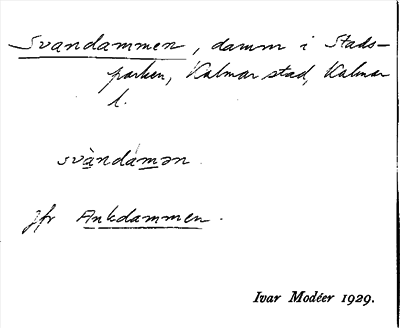 Svandammen, damm i Stads-
parken, Kalmar stad, Kalmar
l.
svàndámən.
jfr Ankdammen.
Ivar Modéer 1929.